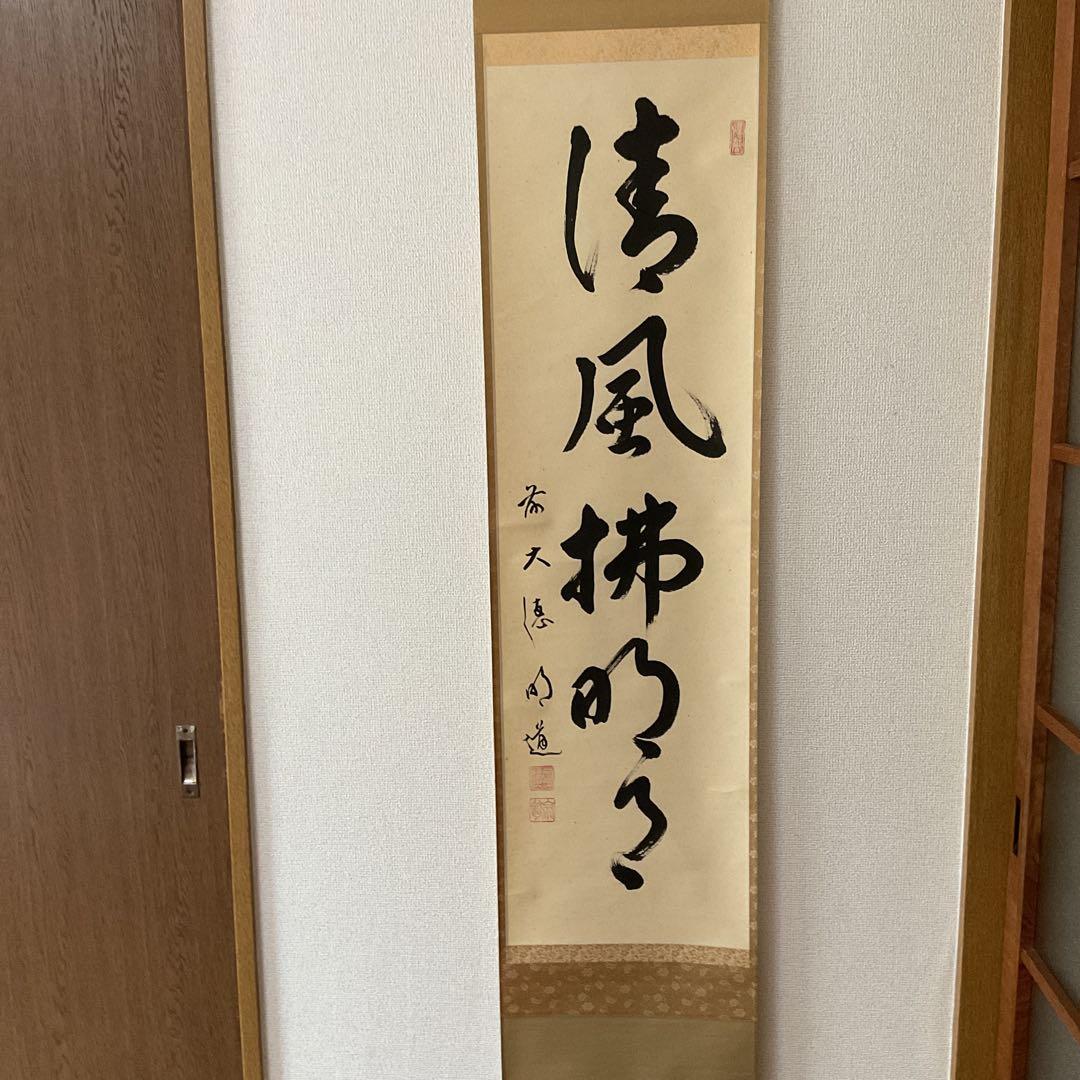 清風拂明月
前大徳 明道